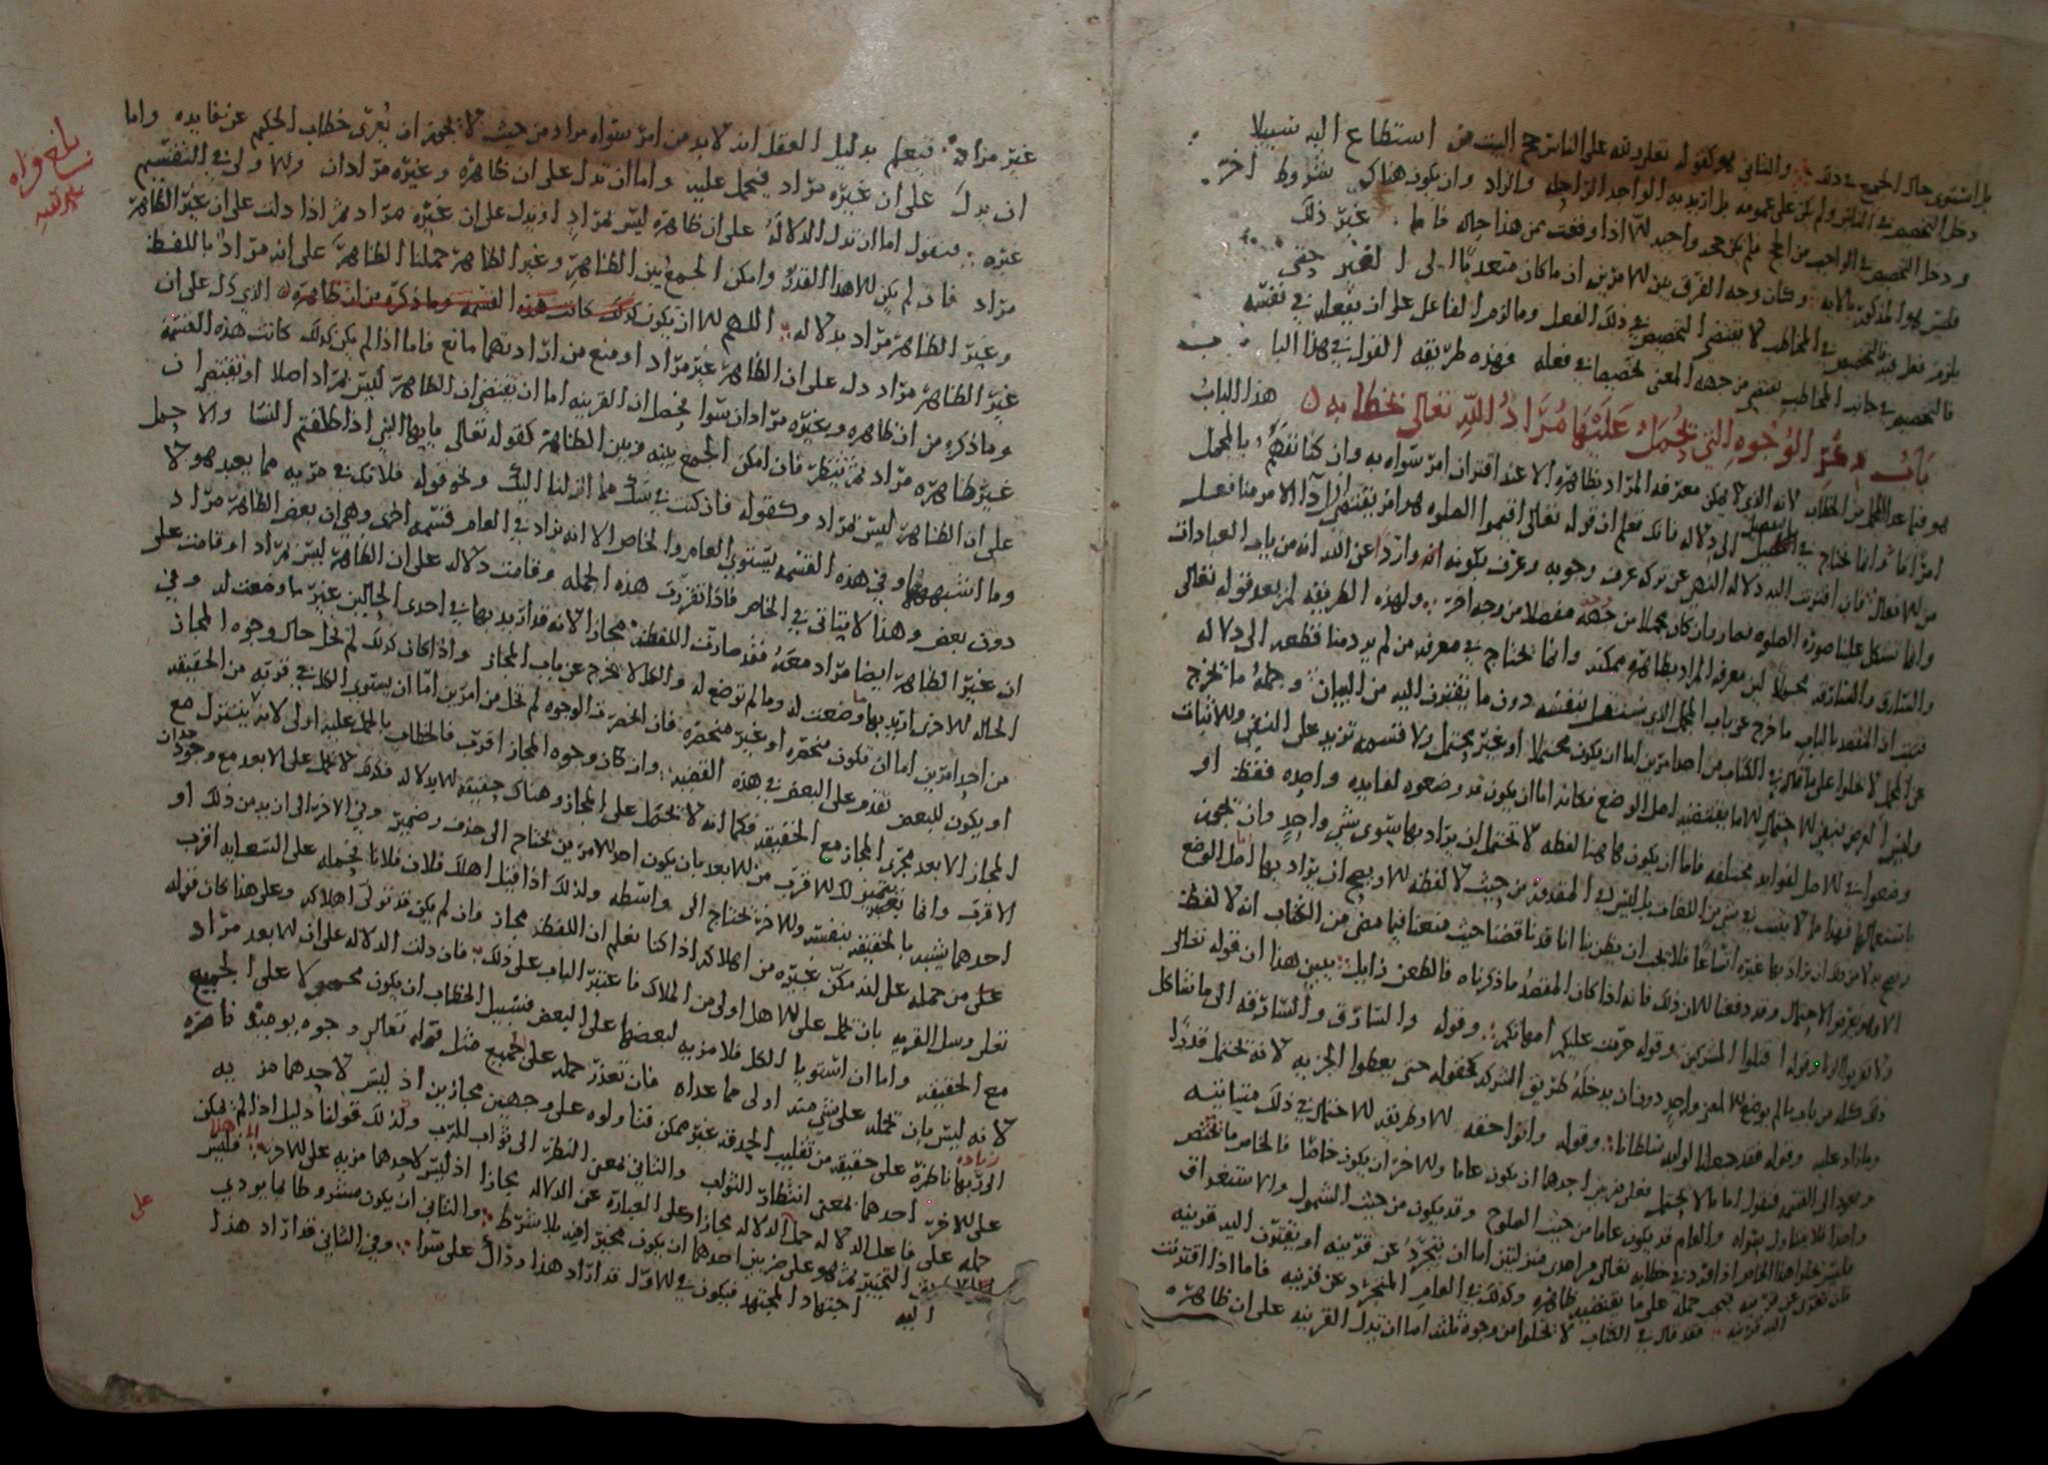 بل استوى حال الجميع في ذلك والثاني هو كقوله تعلى ولله على الناس حج البيت من استطاع اليه سبيلا
دخل التخصيص في الناس ولم يكن على عمومه بل اريد به الواحد الزاد والراحله وان يكون هناك شروط اخر
ودخل التخصيص في الواجب من الحج فلم يكن حجه واحب اذا وقعت من هذا حاله فاما غير ذلك
فليس هو المذكور بالايه وكان وجه الفرق بين الامرين ان ما كان متعديا الى الغير حتى
يلزم فعل فيه فالتخصيص في المخاطب لا يقتضي التخصيص في ذلك الفعل وما لزم الفاعل على ان يفعل في نفسه
فالتخصيص في جانب المخاطب يقتضي من جهه المعنى تخصيصا في فعله فهذه طريقه القول في هذا الباب
باب في ذكر الوجوه التي يحمل عليها مراد الله تعالى بخطابه هذا الباب
هو فيما عدا المجمل من الخطاب لانه الذي لا يمكن معرفه المراد بظاهره الا عند اقتران امر سواه به وان كنا نفهم بالمجمل
امرا ما وانما نحتاج في التفصيل الى دلاله فانك تعلم ان قوله تعالى اقيموا الصلوه هو امر يقتضي اراده الامر منا فعلا
من الافعال فان اقترنت اليه دلاله النهي عن تركه عرف وجوبه وعرف بكونه انه واردا عن الله انه من باب العبادات
وانما تشكل علينا صوره الصلوه فصار بان كان مجملا من جهه مفصلا من وجه اخر ولهذه الطريقه لم يعد قوله تعالى
والسارق والسارقه مجملا لان معرفه المراد بظاهره ممكنه وانما نحتاج في معرفه من لم يرد منا قطعه الى دلاله
فثبت ان المقصد بالباب ما خرج عن باب المجمل الذي يستقل بنفسه دون ما يفتقرون اليه من البيان وجمله ما يخرج
عن المجمل لا يخلوا على ما قال في الكتاب من احد امرين اما ان يكون محتملا او غير محتمل ولا قسمه تزيد على النفي والاثبات
وليس الغرض بنفي الاحتمال الا ما يقتضيه اصل الوضع فكانه اما ان يكون قد وضعوه لفايده واحده فقط او
وضعوا في الاصل لفوايد مختلفه فاما ان يكون هاهنا لفظه لا تحتمل ان يراد بها سوى شي واحد وان تجوز
باستعمالها فهذا ما لا يثبت في شي من اللغات بل ليس في المقدور من حيث لا لفظه الا ويصح ان يراد بها اصل الوضع
ويصح بالامر بعد ان يراد بها غيره اتساعا فلا يجب ان يظن بنا انا قد ناقضنا حيث منعنا فيما مضى من الكتاب انه لا لفظه
الا وهو يعرض الاحتمال وقد دفعنا الان ذلك فانه اذا كان المقصد ما ذكرناه فالطعن زايل يبين هذا ان قوله تعالى
ولا تقربوا الزنا وقوله اقتلوا المشركين وقوله حرمت عليكم امهاتكم وقوله والسارق والسارقه الى ما شاكل
ذلك كله من باب ما لم يوضع الا لمعنى واحد دون ان يدخله طريق الشركه كقوله حتى يعطوا الجزيه لانه يحتمل قدرا
وما زاد عليه وقوله فقد جعلنا لوليه سلطانا وقوله واتوا حقه الا وطريقه الاحتمال في ذلك متباينه
ونعود الى القسم فنقول اما ما لا يحتمل فعلى ضربين احدهما ان يكون عاما والاخر ان يكون خاصا فالخاص ما يختص
واحدا فلا يتناول سواه والعام قد يكون عاما من حيث الصلوح وقد يكون من حيث الشمول والاستغراق
فليس يخلوا هذا الخاص اذا افرد في خطابه تعالى من احدى منزلتين اما ان يتجرد عن قرينه او يقترن اليه قرينه
فان تعرى عن قرينه فيجب حمله على ما يقتضيه ظاهره وكذلك في العام المتجرد عن قرينه فاما اذا اقترنت
اليه قرينه فقد قال في الكتاب لا يخلوا من وجوه ثلثه اما ان تدل القرينه على ان ظاهره
غير مراد فيعلم بدليل العقل انه لا بد من امر سواه مراد من حيث لا يجوز ان يعرى خطاب الحكيم عن فايده واما
ان يدل على ان غيره مراد فيحمل عليه واما ان تدل على ان ظاهره وغيره مرادان والاولى في التقسيم
غيره فنقول اما ان تدل الدلاله على ان ظاهره ليس بمراد او يدل على ان غيره مراد ثم اذا دلت على ان غير الظاهر
مراد فان لم يكن الا هذا القدر وامكن الجمع بين الظاهر وغير الظاهر حملنا الظاهر على انه مراد باللفظ
وغير الظاهر مراد بدلاله اللهم الا ان يكون كذلك كانت هذه القسمه وما ذكره من ان ظاهره الذي دل على ان
غير الظاهر مراد دل على ان الظاهر غير مراد او منع من ارادتهما مانع فاما اذا لم يكن كذلك كانت هذه القسمه
وما ذكره من ان ظاهره وغيره مرادان سوا يحصل ان القرينه اما ان تقتضي ان الظاهر ليس بمراد اصلا او تقتضي ان
غير ظاهره مراد ثم ينظر فان امكن الجمع بينه وبين الظاهر كقوله تعالى يا يها النبي اذا طلقتم النسا والا حمل
على ان الظاهر ليس بمراد وكقوله فان كنت في شك مما انزلنا اليك ونحو قوله فلا تك في مريه مما يعبد هولا
وما اشبههما وفي هذه القسمه يستوي العام والخاص الا انه يزاد في العام قسمه اخرى وهي ان بعض الظاهر مراد
دون بعض وهذا لا يتاتى في الخاص فاذا تقررت هذه الجمله وقامت دلاله على ان الظاهر ليس بمراد او قامت على
ان غير الظاهر ايضا مراد معه فقد صارت اللفظه مجازا لانه قد اريد بها في احدى الحالين غير ما وضعت له وفي
الحاله الاخرى اريد بها ما وضعت له وما لم توضع له والكل لا يخرج عن باب المجاز واذا كان كذلك لم يخل حال وجوه المجاز
من احد امرين اما ان تكون منحصره او غير منحصره فان انحصرت الوجوه لم تخل من امرين اما ان يستوي الكل في قربه من الحقيقه
او يكون للبعض تقدم على البعض في هذه القضيه وان كان وجوه المجاز اقرب فالخطاب بالحمل عليه اولى لانه يتنزل مع
المجاز الابعد مجرى المجاز مع الحقيقه فكما انه لا يحمل على المجاز وهناك حقيقه الا بدلاله فكذلك لا يحمل على الابعد مع وجود وجدان
الاقرب وانما يتميز لك الاقرب من الابعد بان يكون احد الامرين يحتاج الى حذف وضمير وفي الاخر الى ازيد من ذلك او
احدهما يشبه بالحقيقه بنفسه والاخر يحتاج الى واسطه ولذلك اذا قيل اهلك فلان فلانا بحمله على السعايه اقرب
على من حمله على انه مكن غيره من اهلاكه اذ كنا نعلم ان اللفظه مجاز وان لم يكن قد تولى اهلاكه وعلى هذا كان قوله
تعلى وسل القريه بان تحمل على الاهل اولى من الملاك فاعتبر الباب على ذلك فان دلت الدلاله على ان الابعد مراد
مع الحقيقه واما ان استويا الكل فلا مزيه لبعضها على البعض فسبيل الخطاب ان يكون محمولا على الجميع
لانه ليس بان تحمله على شي منه اولى مما عداه فان تعذر حمله على الجميع مثل قوله تعالى وجوه يوميذ ناضره
الى ربها ناظره على حقيقه من تقليب الحدقه غير ممكن فتاولوه على وجهين مجازين اذ ليس لاحدهما مزيه
على الاخر احدهما بمعنى انتظار الثواب والثاني بمعنى النظر الى ثواب الرب ولذلك قولنا دليل اذا لم يمكن
حمله على فاعل الدلاله حمل الدلاله مجازا على العباره عن الدلاله مجازا اذ ليس لاحدهما مزيه على الاخر فليس
التخيير ثم هو على ضربين احدهما ان يكون مخيرا فيه بلا شرط والثاني ان يكون مشروطا بما يودي
اليه اجتهاد المجتهد فيكون في الاول قد اراد هذا وذاك على سوا وفي الثاني قد اراد هذا
بلغ قراه
على